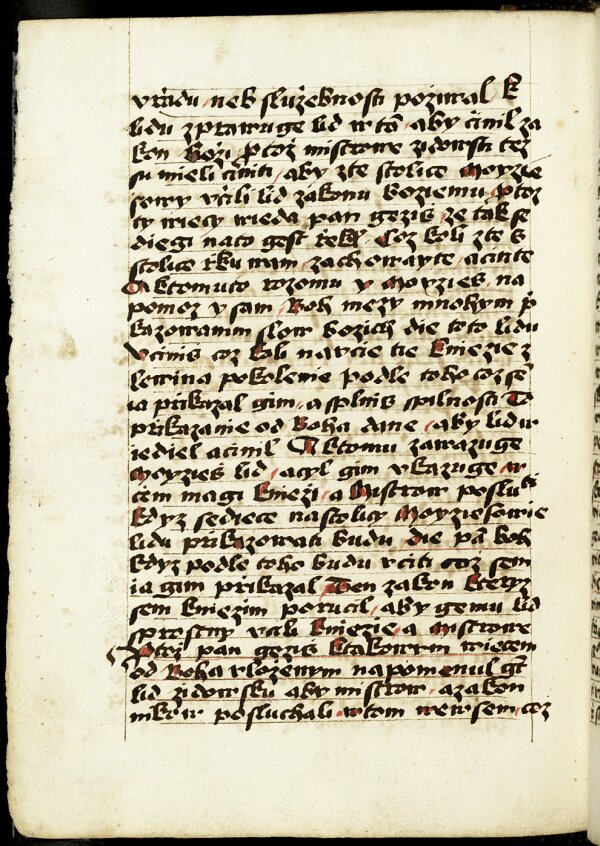 vřadu neb služebnosti požiwal K
lidu zprawuge lid w to aby činil za
kon Boži Protož mistrowe židowsti též
su mieli činiti aby z té stolice Moyzie
sowy včili lid zákonu božiemu Protož
ty wiecy wieda pan gežiš že tak se
diegi na to gest řekl Což koli z té s
stolice řku wam zachowayte a činte
A k tomuto rozomu y Moyzies na
pomoz y sam Boh mezy mnohym př
kazowanim slow božich die toto lidu
Včiniš což koli naučie tie kniezie z
lewina pokolenie podle toho což sem
ia přikazal gim a splniš spilnosti To
přikazanie od Boha dane aby lid w
iediel a činil A k tomu zawazuge
Moyzieš lid a cyl gim vkazuge w
čem magi kniezi a Mistrow posluch
Kdyz sediece na stolicy Moyziesowie
lidu přikazowati budu die pan boh
kdyz podle toho budu včiti což sem
ia gim přikazal Ten zakon kteryz
sem kniezim poručil aby gemu lid
sprostny včili kniezie a mistrowe
Protož pan gežiš k takowym wiecem
od Boha vloženym napomenul gest
lid židowsky aby mistrow a zakon
nikow posluchali w tom we wsem což